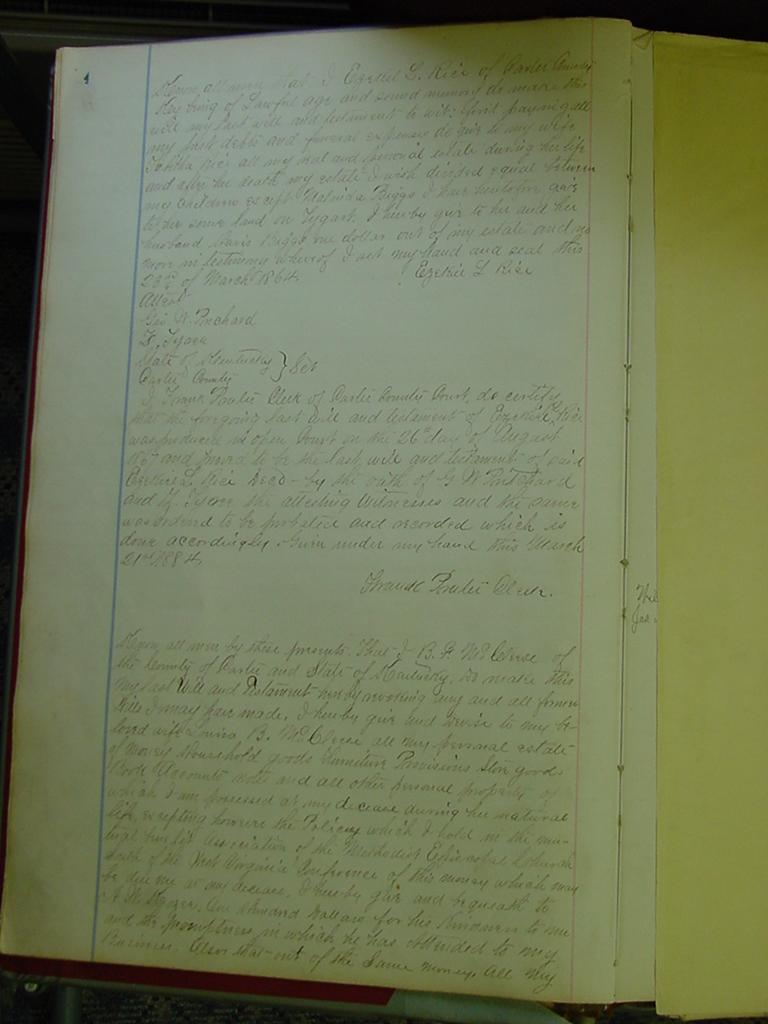 4
Know all men that I Ezekiel L. Rice of Carter County
Ky being of Lawful age and sound memory do make this
will my last will and testament to wit: first paying all
my just debts and funeral expenses do give to my wife
Tobitha Rice all my real and personal estate during her life
and after her death my estate I wish divided equal between
my children except Malinda Biggs I have heretofore give
to her some land on Tygart. I hereby give to her and her
husband Davis Biggs one dollar out of my estate and no
more in testimony whereof I set my hand and seal this
23rd of March 1864.
Ezekiel L Rice
Attest
Geo W. Prichard
Z. Tyree
State of Kentucky } Sct
Carter County
I Frank Prater Clerk of Carter County Court, do certify
that the foregoing last will and testament of Ezekiel L Rice
was produced in open Court on the 26th day of August
1867 and proved to be the last will and testament of said
Ezekiel L Rice Decd - by the oath of G W Pritchard
and Z. Tyree the attesting Witnesses and the same
was ordered to be probated and recorded which is
done accordingly. Given under my hand this March
21st 1884
Frank Prater Clerk.
Know all men by these presents. That I B. F. McClure of
the County of Carter and State of Kentucky, do make this
my last Will and Testament hereby revoking any and all former
Wills I may have made. I hereby give and devise to my be-
loved wife Louisa B. McClure all my personal estate
of money Household goods Furniture Provisions Store goods
Book Accounts note and all other personal property of
which I am possessed at my decease during her natural
life, excepting however the Policy which I hold in the mu-
tual benefit Association of the Methodist Episcopal Church
South of the West Virginia Conference of this money which may
be due me at my decease. I hereby give and bequeath to
A. W. One Hundred Dollars for his Kindness to me
and the promptness in which he has attended to my
business. Also that out of the Same money, all my